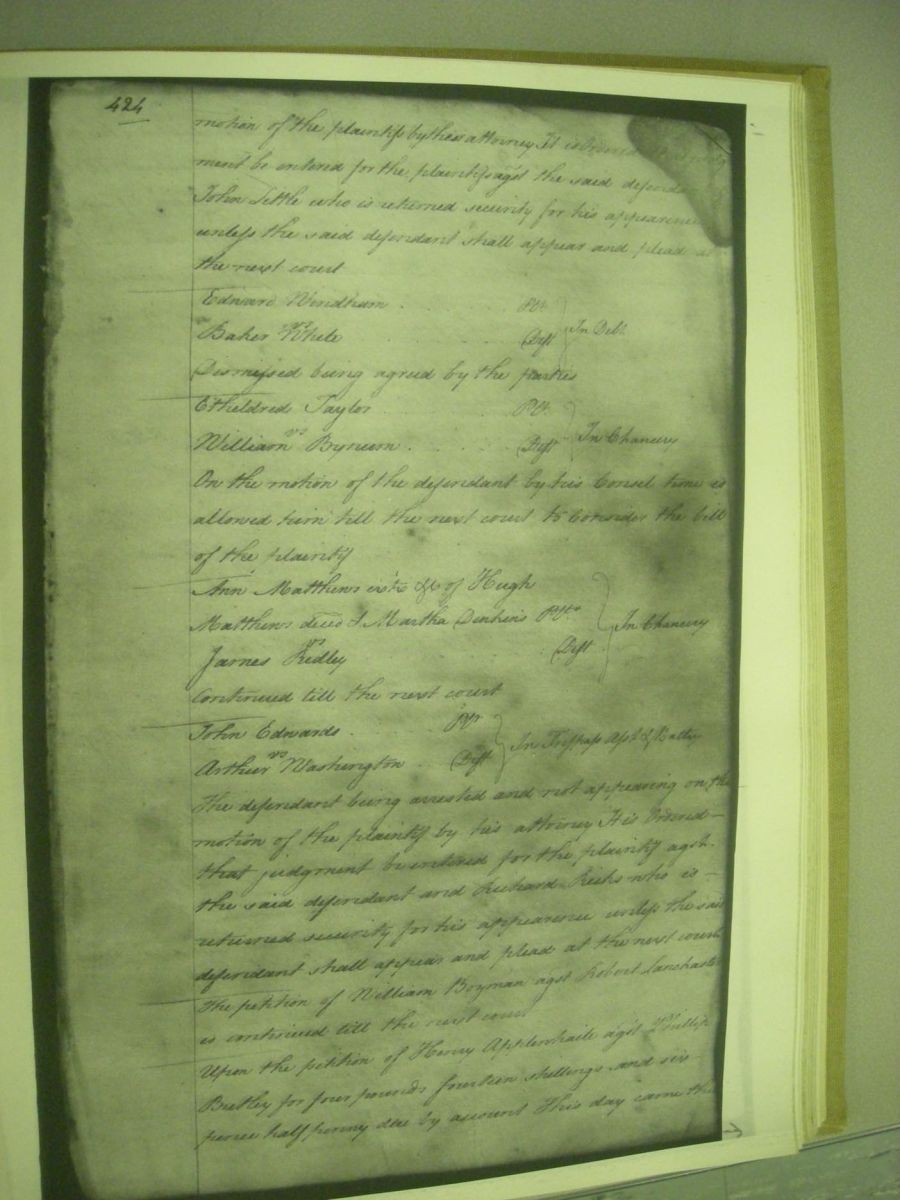 424
motion of the plaintifs by their attorney It is Ordered
ment be entered for the plaintifs agst the said defenda
John Little who is returned security for his appearance
unless the said defendant shall appear and plead at
the next court
Edward Windham . . . . Plt.
vs
Baker White . . . . Deft
In Debt.
Dismissed being agreed by the parties
Etheldred Taylor . . . . Plt.
vs
William Bynum . . . . Deft
In Chancery
On the motion of the defendant by his Consel time is
allowed him till the next court to Consider the bill
of the plaintif
Ann Matthews extx &c of Hugh
Matthews deced & Martha Denkins Plts
vs
James Ridley . . . Deft
In Chancery
Continued till the next court
John Edwards . . . Plt
vs
Arthur Washington . . Deft
In Trespass Aslt & Battry
The defendant being arrested and not appearing on the
motion of the plaintif by his attorney It is Ordered
that judgment be entered for the plaintif agst.
the said defendant and Richard Ricks who is
returned security for his appearence unless the said
defendant shall appear and plead at the next court
The petition of William Boyman agst Robert Lanchaster
is continued till the next court
Upon the petition of Henry Applewhaite agst Phillip
Bretley for four pounds fourteen shillings and six
pence half penny due by account This day came the